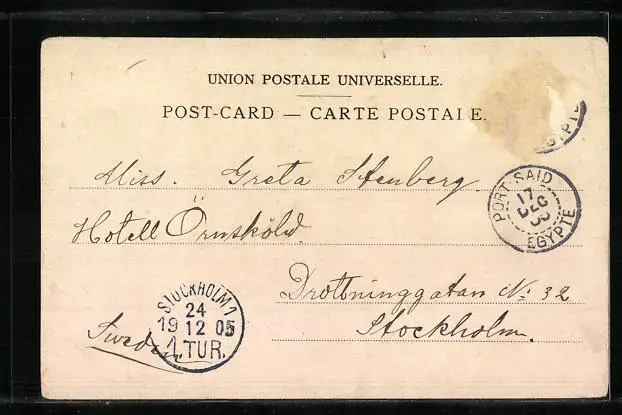 UNION POSTALE UNIVERSELLE.
POST-CARD — CARTE POSTALE.
GYPTE
Miss. Greta Stenberg.
PORT-SAID
17
DEC
EGYPTE
Hotell Örnsköld.
Drottninggatan No: 32
Stockholm.
Sweden.
STOCKHOLM 1
24
19 12 05
1. TUR.